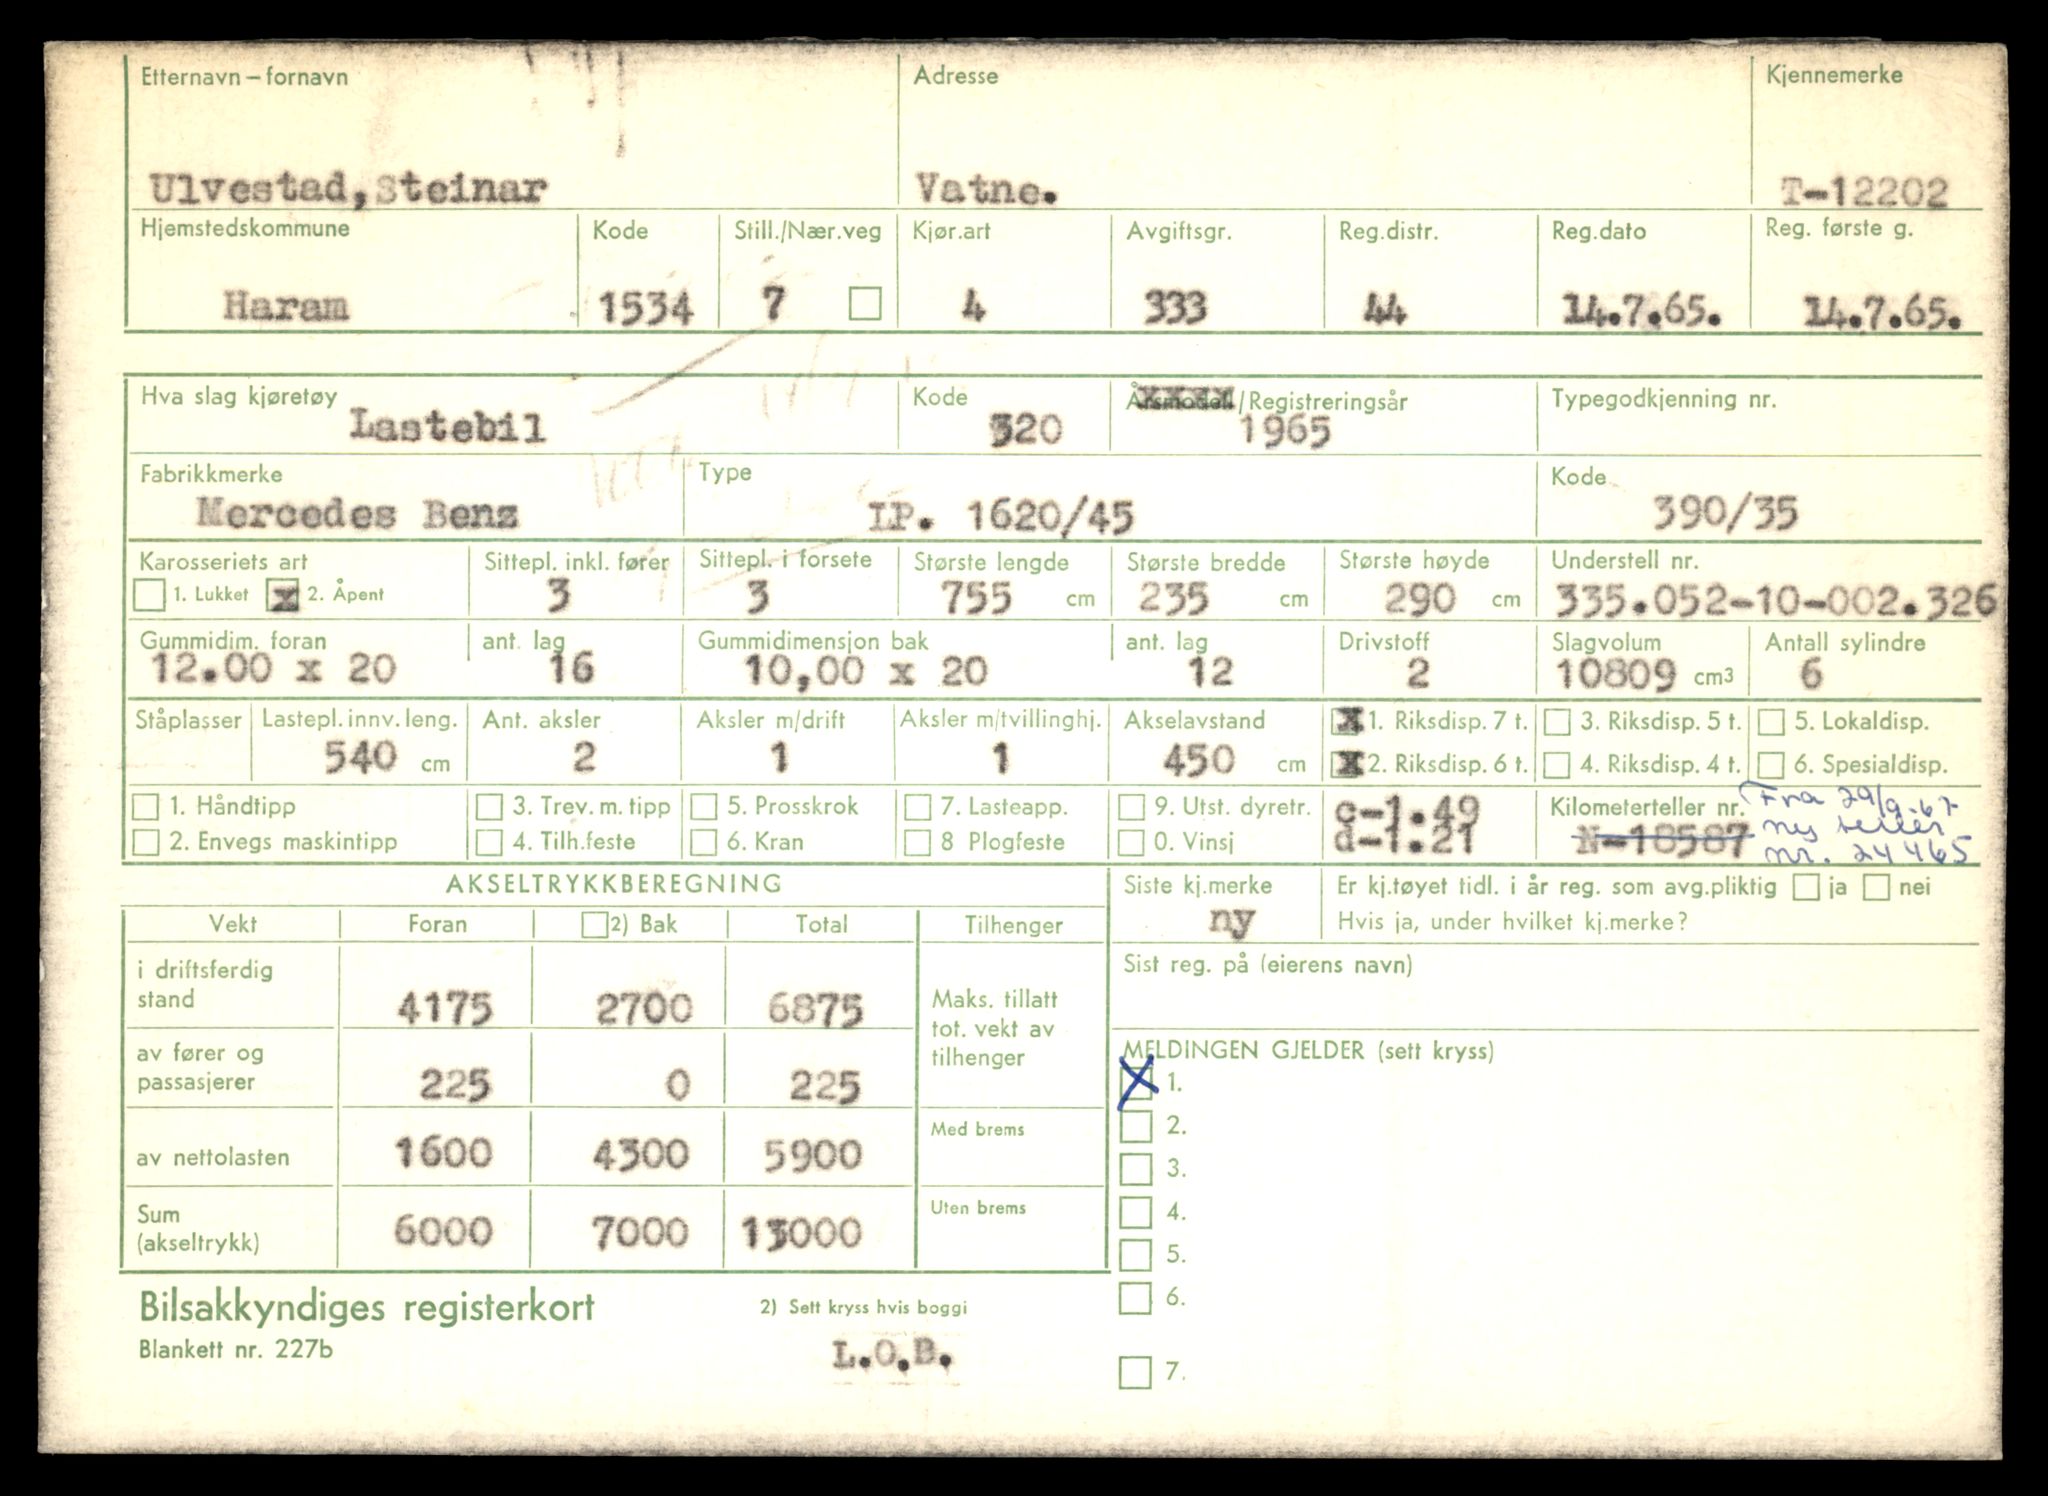 Etternavn – fornavn Adresse Kjennemerke
Ulvestad, Steinar Vatne. T-12202
Hjemstedskommune Kode Still./Nær.veg Kjør.art Avgiftsgr. Reg.distr. Reg.dato Reg. første g.
Haram 1534 7 4 333 44 14.7.65. 14.7.65.
Hva slag kjøretøy Kode Årsmodell/Registreringsår Typegodkjenning nr.
Lastebil 320 1965
Fabrikkmerke Type Kode
Mercedes Benz LP. 1620/45 390/35
Karosseriets art Sittepl. inkl. fører Sittepl. i forsete Største lengde Største bredde Største høyde Understell nr.
1. Lukket x 2. Åpent 3 3 755 cm 235 cm 290 cm 335.052-10-002.326
Gummidim. foran ant. lag Gummidimensjon bak ant. lag Drivstoff Slagvolum Antall sylindre
12.00 x 20 16 10,00 x 20 12 2 10809 cm3 6
Ståplasser Lastepl. innv. leng. Ant. aksler Aksler m/drift Aksler m/tvillinghj. Akselavstand x 1. Riksdisp. 7 t. 3. Riksdisp. 5 t. 5. Lokaldisp.
540 cm 2 1 1 450 cm x 2. Riksdisp. 6 t. 4. Riksdisp. 4 t. 6. Spesialdisp.
1. Håndtipp 3. Trev. m. tipp 5. Prosskrok 7. Lasteapp. 9. Utst. dyretr. c-1.49 Kilometerteller nr. Fra 29/9-67
2. Envegs maskintipp 4. Tilh.feste 6. Kran 8 Plogfeste 0. Vinsj d-1.21 N-18587 ny teller
nr. 24465
AKSELTRYKKBEREGNING Siste kj.merke Er kj.tøyet tidl. i år reg. som avg.pliktig ja nei
Vekt Foran 2) Bak Total Tilhenger ny Hvis ja, under hvilket kj.merke?
i driftsferdig Sist reg. på (eierens navn)
stand 4175 2700 6875 Maks. tillatt
tot. vekt av
av fører og tilhenger MELDINGEN GJELDER (sett kryss)
passasjerer 225 0 225 X 1.
Med brems 2.
av nettolasten 1600 4300 5900 3.
Sum Uten brems 4.
(akseltrykk) 6000 7000 13000 5.
Bilsakkyndiges registerkort 2) Sett kryss hvis boggi 6.
Blankett nr. 227b L.O.B. 7.